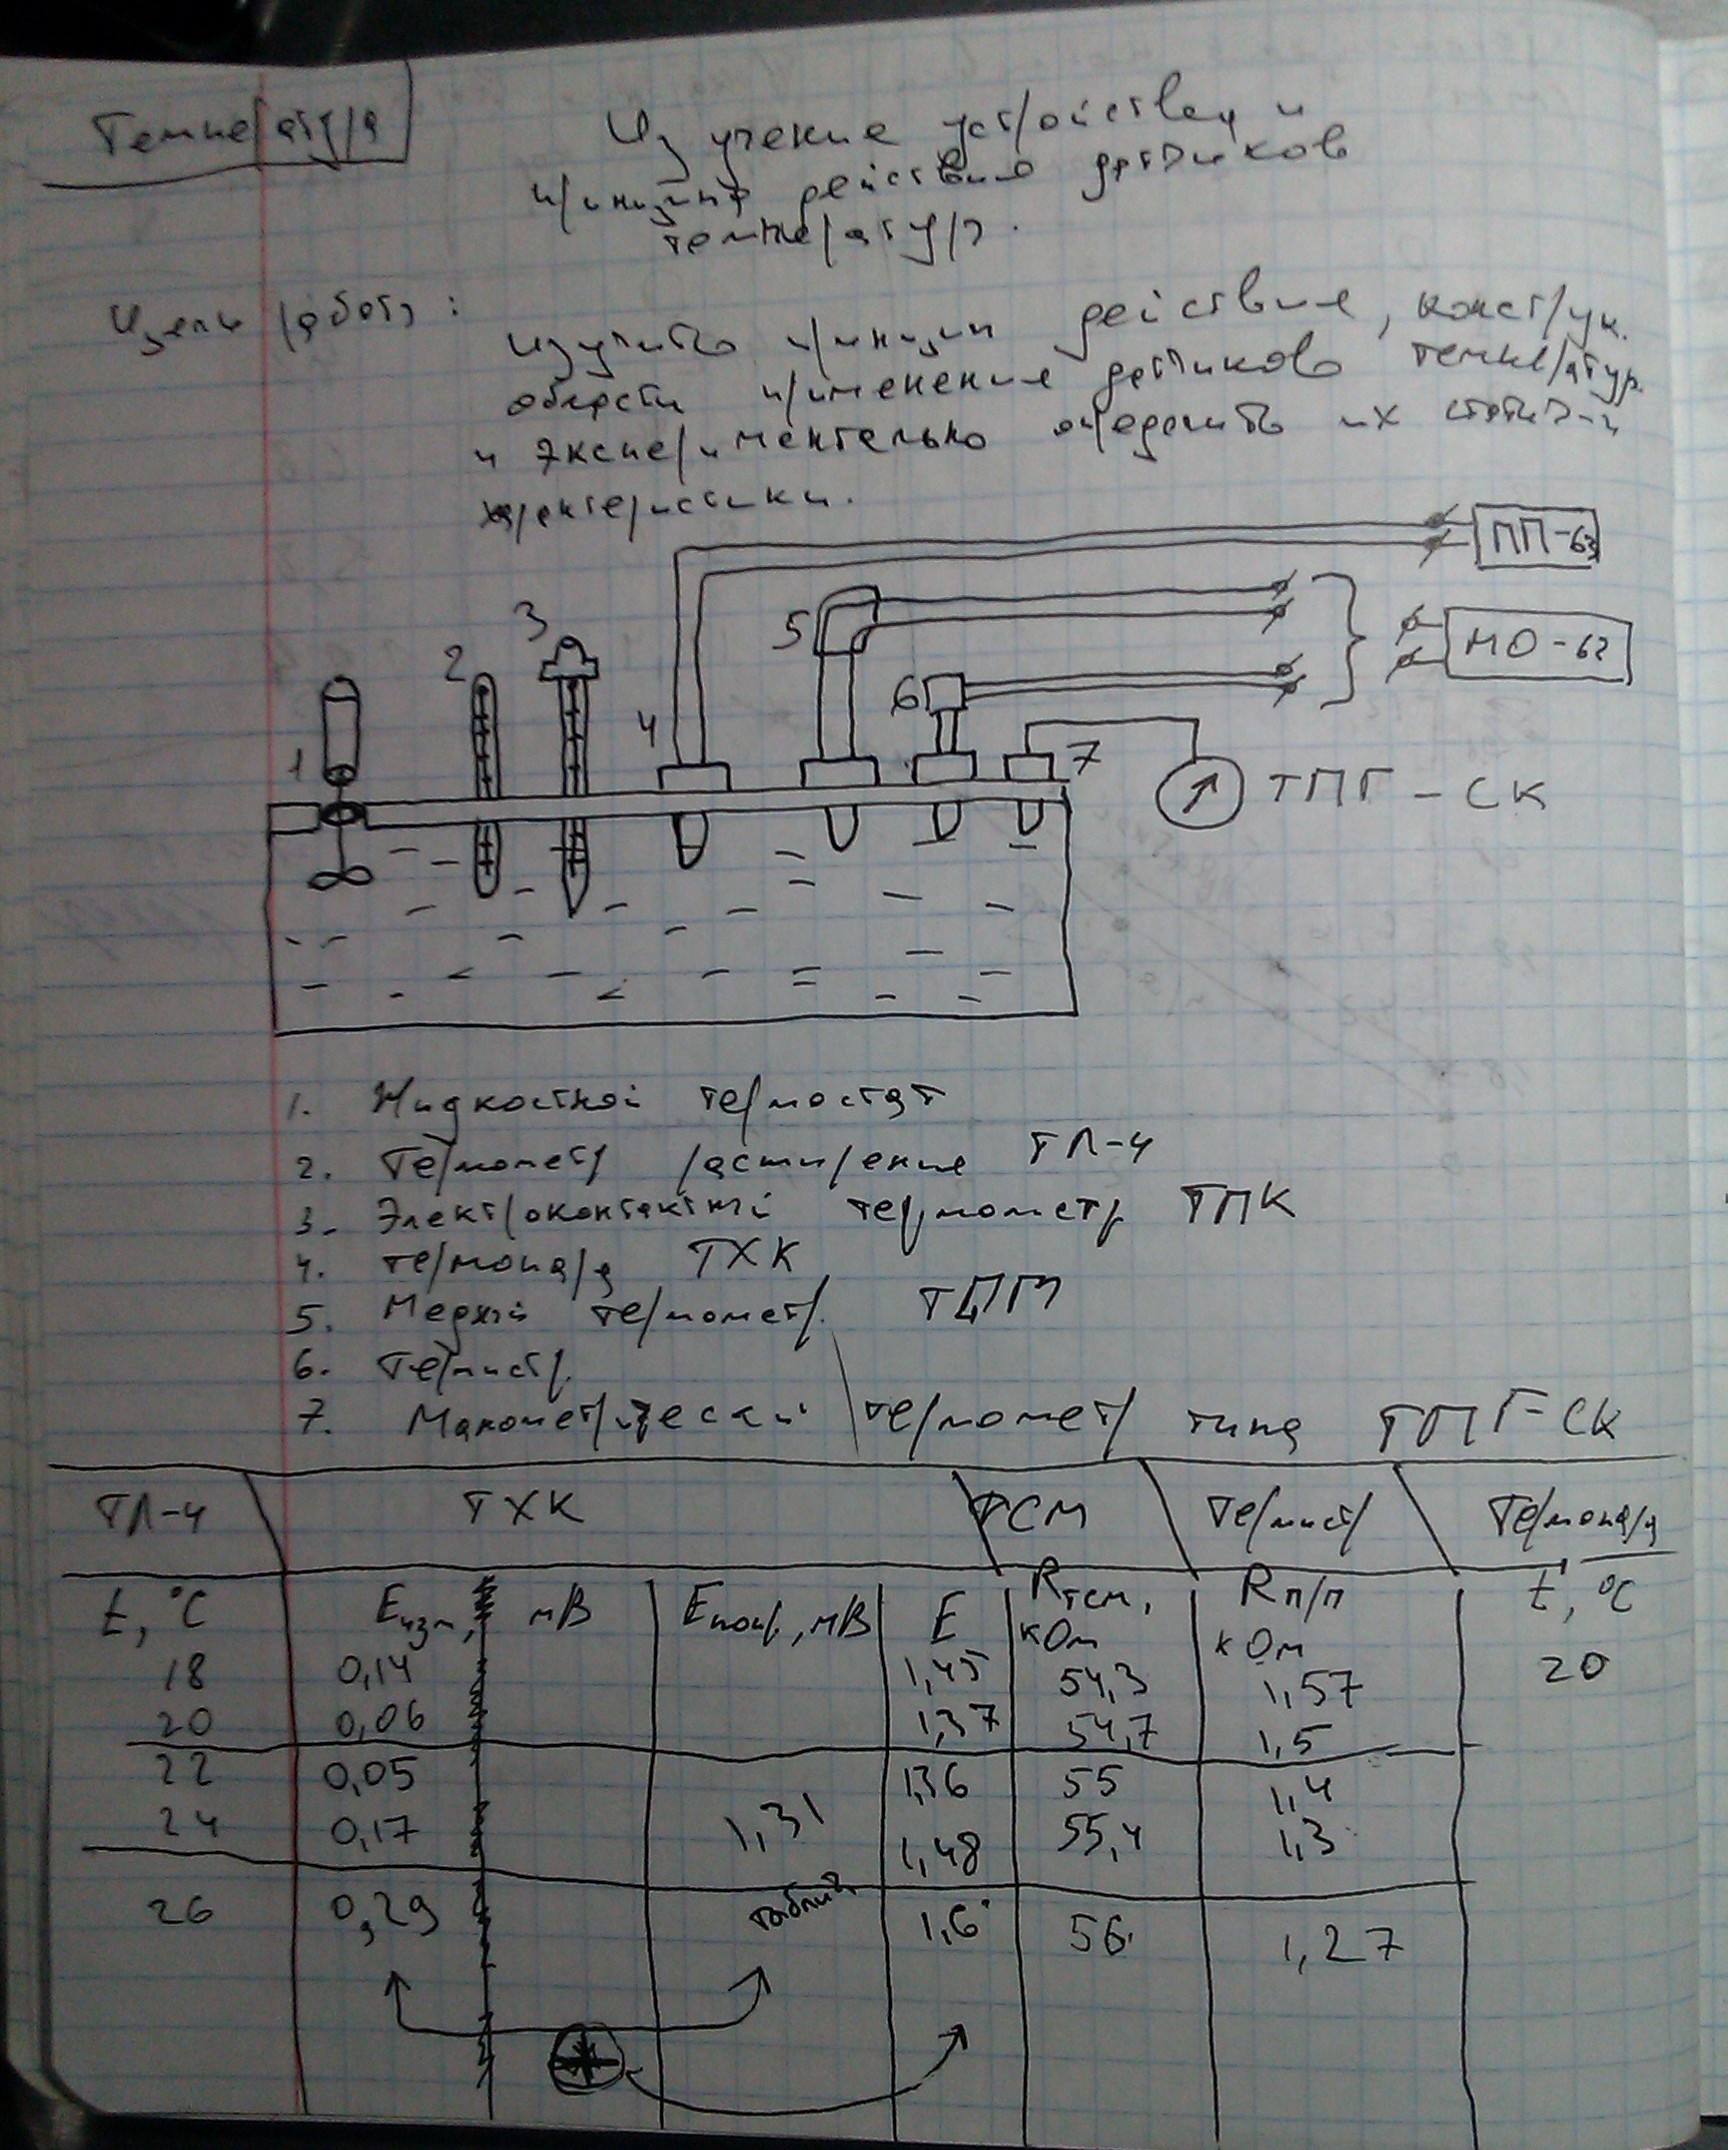 Температура
Изучение устройства и
принципа действия датчиков
температуры.
Цель работы:
изучить принцип действия, конструк.
области применения датчиков температур.
и экспериментально определить их статич-и
характеристики.
ПП-63
МО-62
1
2
3
4
5
6
7
ТПГ-СК
1. Жидкостной термостат
2. Термометр расширения ТЛ-4
3. Электроконтактный термометр ТПК
4. термопара ТХК
5. Медный термометр.
6. Термистр.
7. Манометрический термометр типа ТПГ-СК
ТЛ-4 ТХК ТСМ Термистр Термопара
t, °C Eизм, мВ Eпопр, мВ E Rтсм, кОм Rп/п кОм t, °C
18 0,14 1,45 54,3 1,57 20
20 0,06 1,37 54,7 1,5
22 0,05 1,36 55 1,4
24 0,17 1,31 1,48 55,4 1,3
26 0,29 1,6 56 1,27